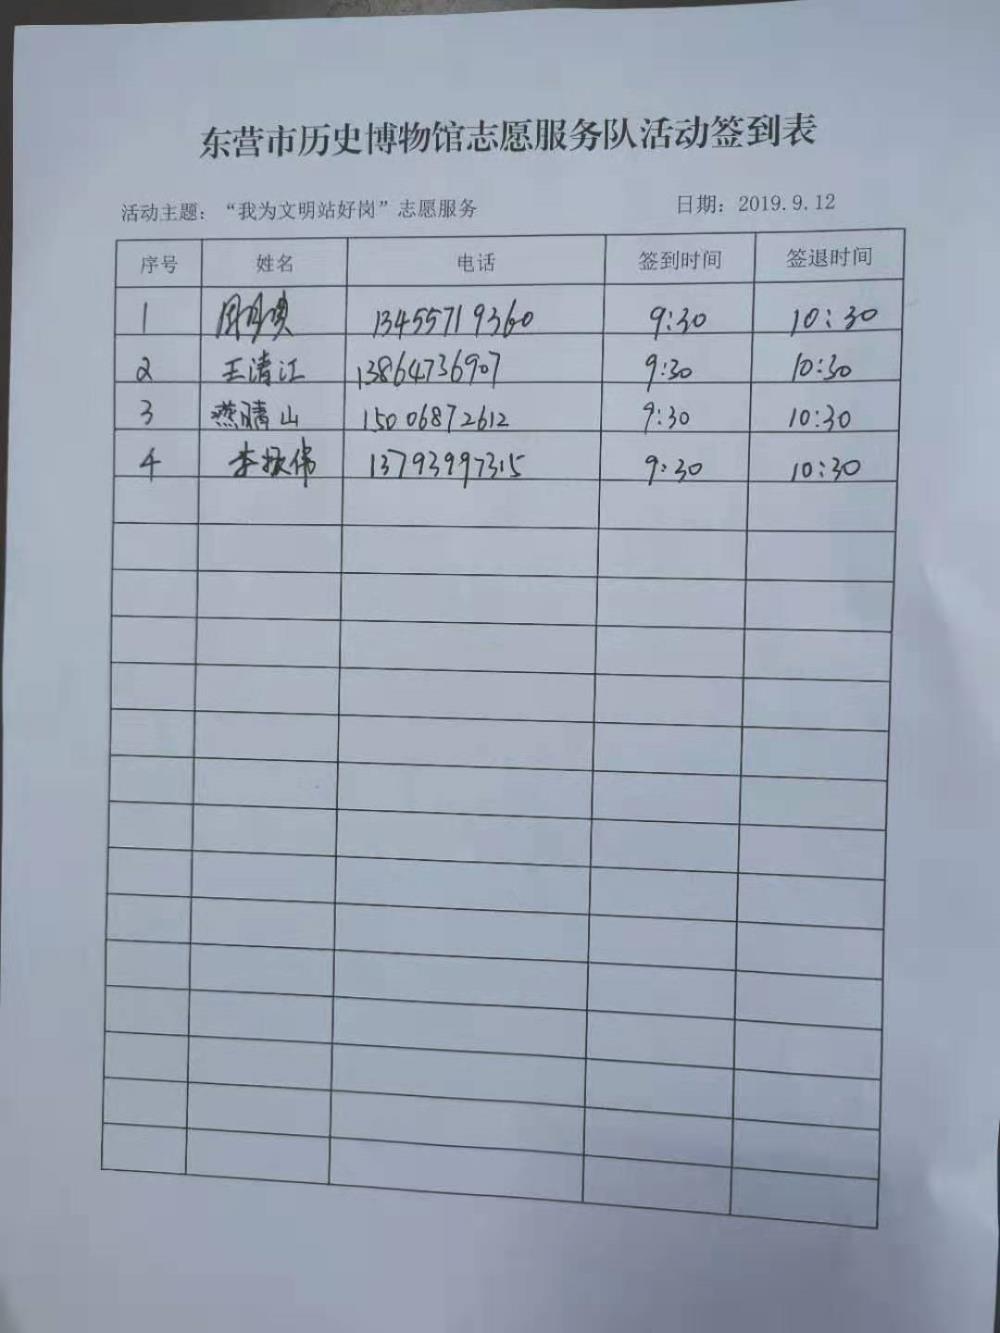 东营市历史博物馆志愿服务队活动签到表
活动主题：“我为文明站好岗”志愿服务 日期：2019.9.12
序号 姓名 电话 签到时间 签退时间
1 13455719360 9:30 10:30
2 王清江 13864736907 9:30 10:30
3 燕晴山 15006872612 9:30 10:30
4 李振伟 13793997315 9:30 10:30